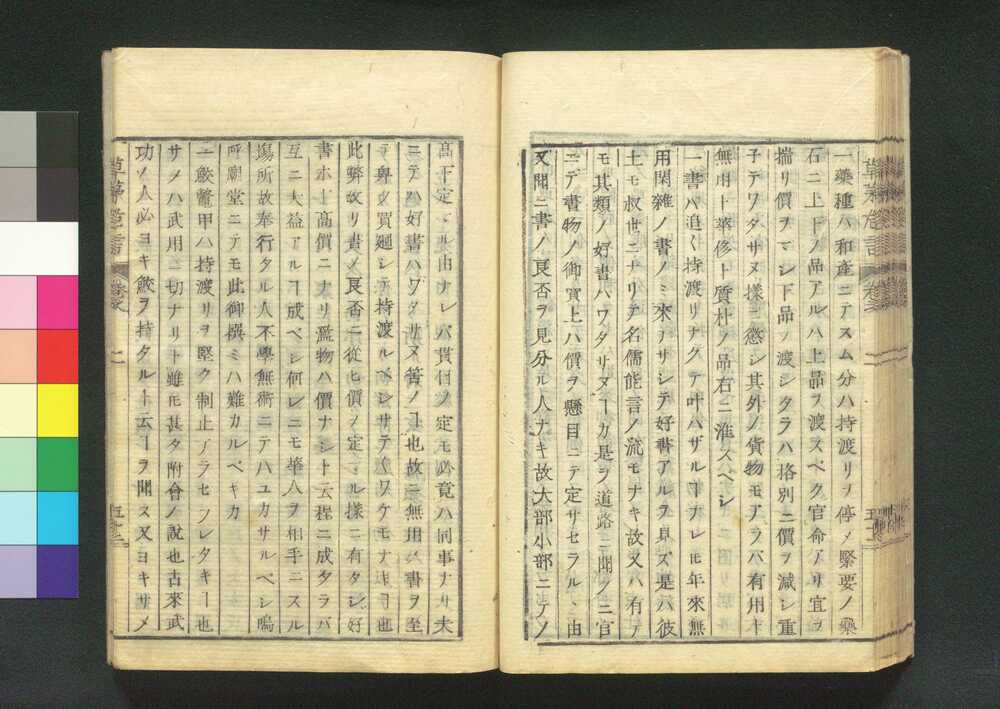 一藥種ハ和產ニテスム分ハ持渡リヲ停メ緊要ノ藥
石ニ上下ノ品アルハ上品ヲ渡スベク官命アリ宜ヲ
揣リ價ヲマシ下品ヲ渡シタラハ格別ニ價ヲ減シ重
子テワタサヌ樣ニ懲シ其外ノ貨物モアラバ有用ト
無用ト華侈ト質朴ノ品右ニ准スベシ
一書ハ追〻持渡リナクテ叶ハザルヿナレ𪜈年來無
用閑雜ノ書ノミ來テサシテ好書アルヲ見ズ是ハ彼
土モ叔世ニナリテ名儒能言ノ流モナキ故又ハ有テ
モ其類ノ好書ハワタサヌヿカ是ヲ道路ニ聞ノニ官
ニテ書物ノ御買上ハ價ヲ懸目ニテ定サセラルヽ由
又聞ニ書ノ良否ヲ見分ル人ナキ故大部小部ニテノ
高下定ヽル由ナレバ貫目ノ定モ必竟ハ同事ナリ夫
ニテハ好書ハワタサヌ筈ノヿ也故ニ無用ノ書ヲ至
テ興ノ買廻シテ持渡ルベシサテ〳〵ワケモナキヿ也
此弊故リ書ノ良否ニ從ヒ價ヲ定ヽル樣ニ有タシ好
書ホト高價ニナリ濫物ハ價ナシト云程ニ成タラバ
互ニ大益アルヿ成ベシ何レニモ華人ヲ相手ニスル
塲所故奉行タル人不學無術ニテハユカサルベシ嗚
呼廟堂ニテモ此御撰ミハ難カルベキカ
一鮫鼈甲ハ持渡リヲ堅ク制止アラセラレタキヿ也
サメハ武用ニ切ナリト雖𪜈甚タ附會ノ說也古來武
功ノ人必ヨキ鮫ヲ持タルト云ヿヲ聞ス又ヨキサメ